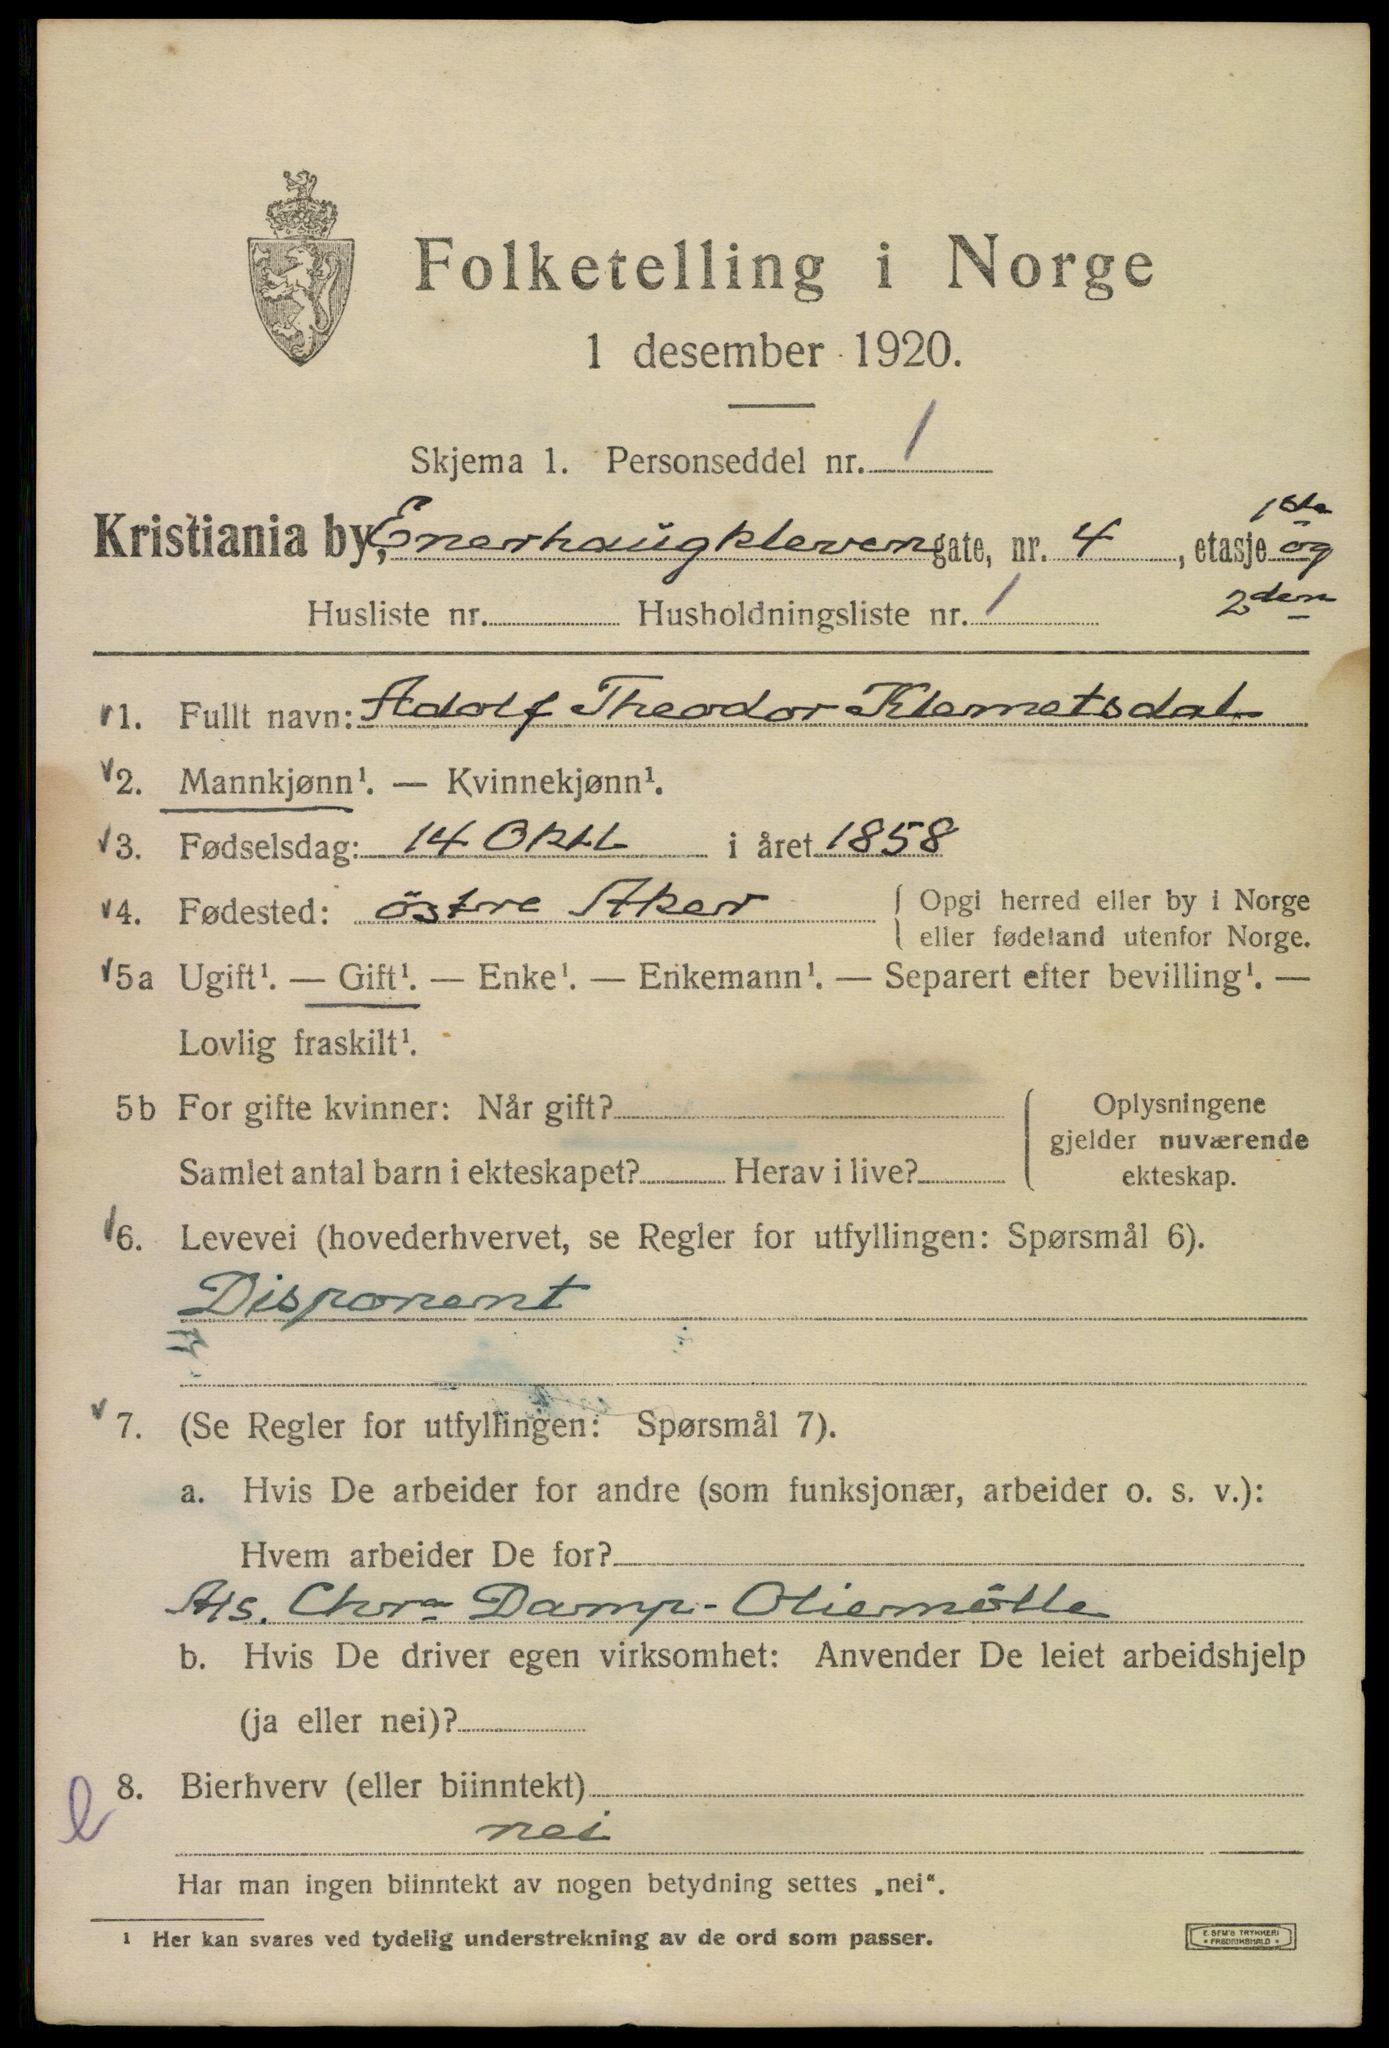 Folketelling i Norge
1 desember 1920.
Skjema 1. Personseddel nr. 1
Kristiania by, Enerhaugkleven gate, nr. 4, etasje 1ste og 2den
Husliste nr. Husholdningsliste nr. 1
1. Fullt navn: Adolf Theodor Klemetsdal
2. Mannkjønn¹. — Kvinnekjønn¹.
3. Fødselsdag: 14 Oktb i året 1858
4. Fødested: östre Aker { Opgi herred eller by i Norge
eller fødeland utenfor Norge.
5a Ugift¹. — Gift¹. — Enke¹. — Enkemann¹. — Separert efter bevilling¹. —
Lovlig fraskilt¹.
5b For gifte kvinner: Når gift? { Oplysningene
gjelder nuværende
Samlet antal barn i ekteskapet? Herav i live? ekteskap.
6. Levevei (hovederhvervet, se Regler for utfyllingen: Spørsmål 6).
Disponent
7. (Se Regler for utfyllingen: Spørsmål 7).
a. Hvis De arbeider for andre (som funksjonær, arbeider o. s. v.):
Hvem arbeider De for?
A/s. Chra Damp-Oliemölle
b. Hvis De driver egen virksomhet: Anvender De leiet arbeidshjelp
(ja eller nei)?
8. Bierhverv (eller biinntekt)
nei
Har man ingen biinntekt av nogen betydning settes „nei“.
¹ Her kan svares ved tydelig understrekning av de ord som passer.
E. SEM'S TRYKKERI
FREDRIKSHALD